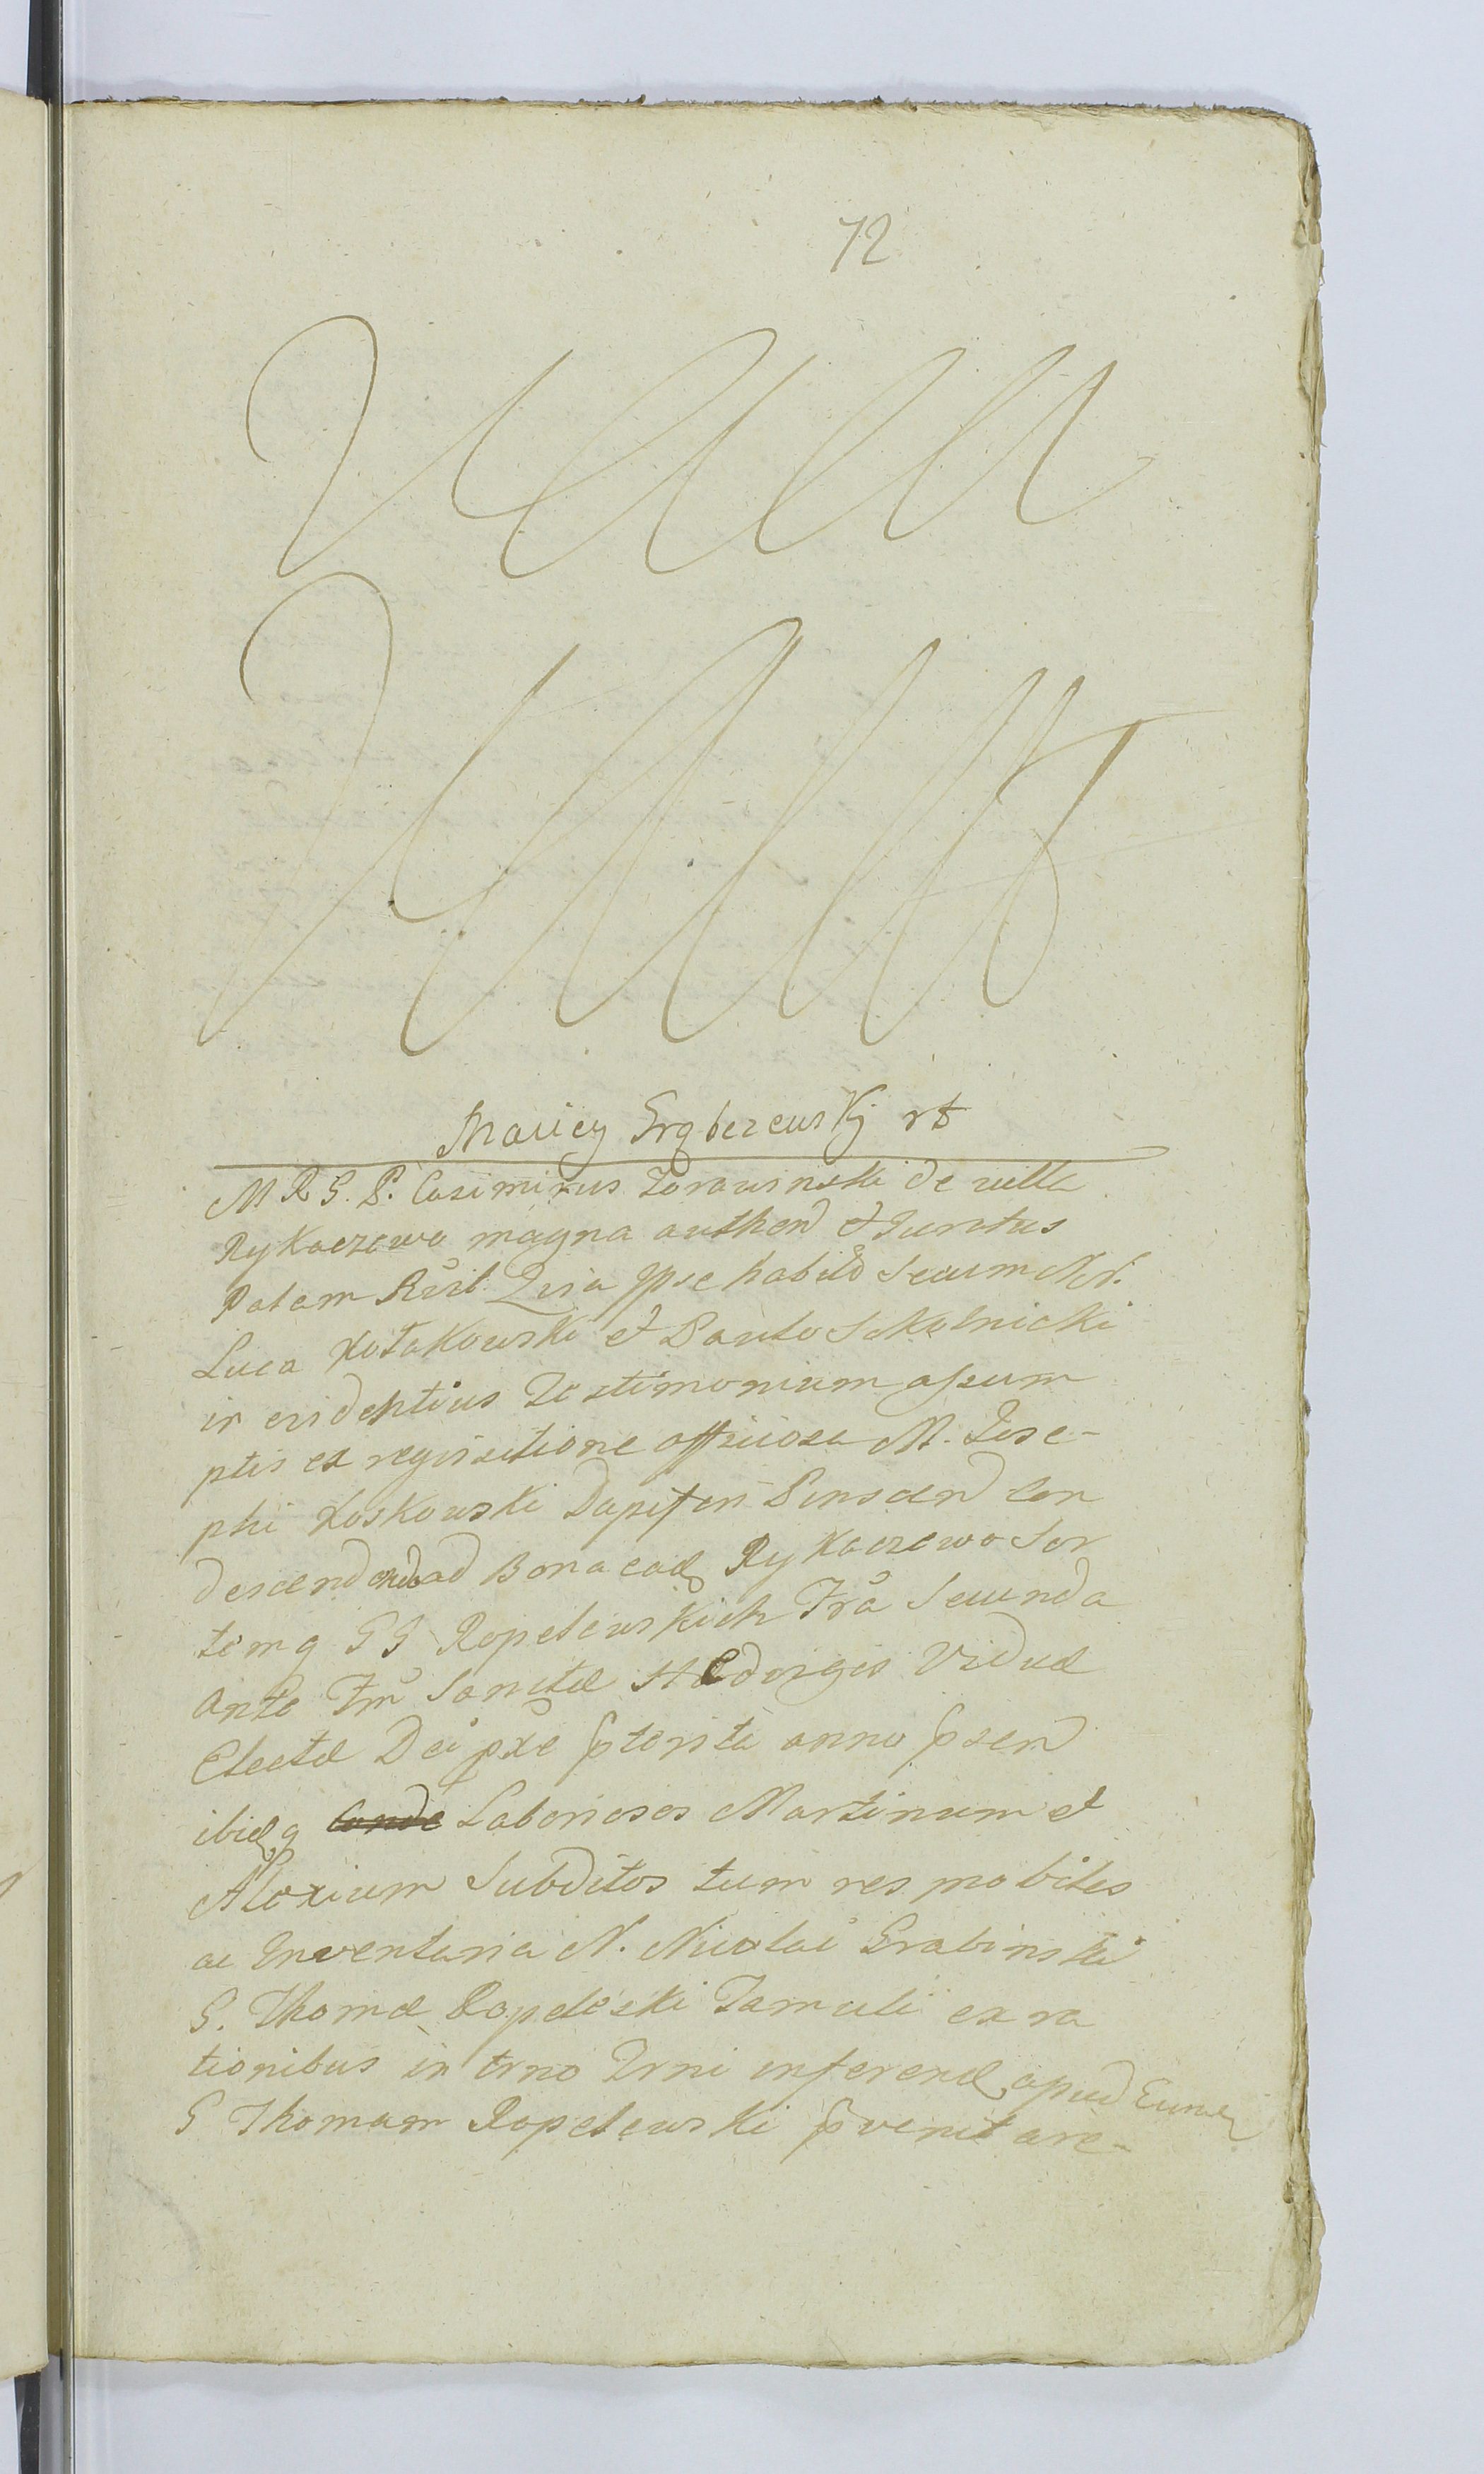 72
Maciey Grąbczewskj
M R G. P. Casimirus Zorawinski de villa
Rykaczewo magna authen et Juratus
Palam Rcvit Quia Ipse habitis secum NN.
Luca Kołakowski et Paulo Skolnicki
in evidentius Testimonium assum
ptis ex reqvisitione officiosa M. Jose-
phi Łoskowski Dapiferi con
descendendo ad Bona ead Rykaczewo Sor
temq GG Ropelewskich Fra Secunda
ante Fm Sanctæ Hedvigis Viduæ
Electæ Dei pxe pterita anno psen
ibidq Laboriosos Martinum et
Alexium Subditos tum res mobiles
ac Inventaria N. Nicolai Grabinski
G. Thomæ Ropeleski Famuli ex ra
tionibus in trno Trni inferend apud Eund
G Thomam Ropelewski pvenit are-